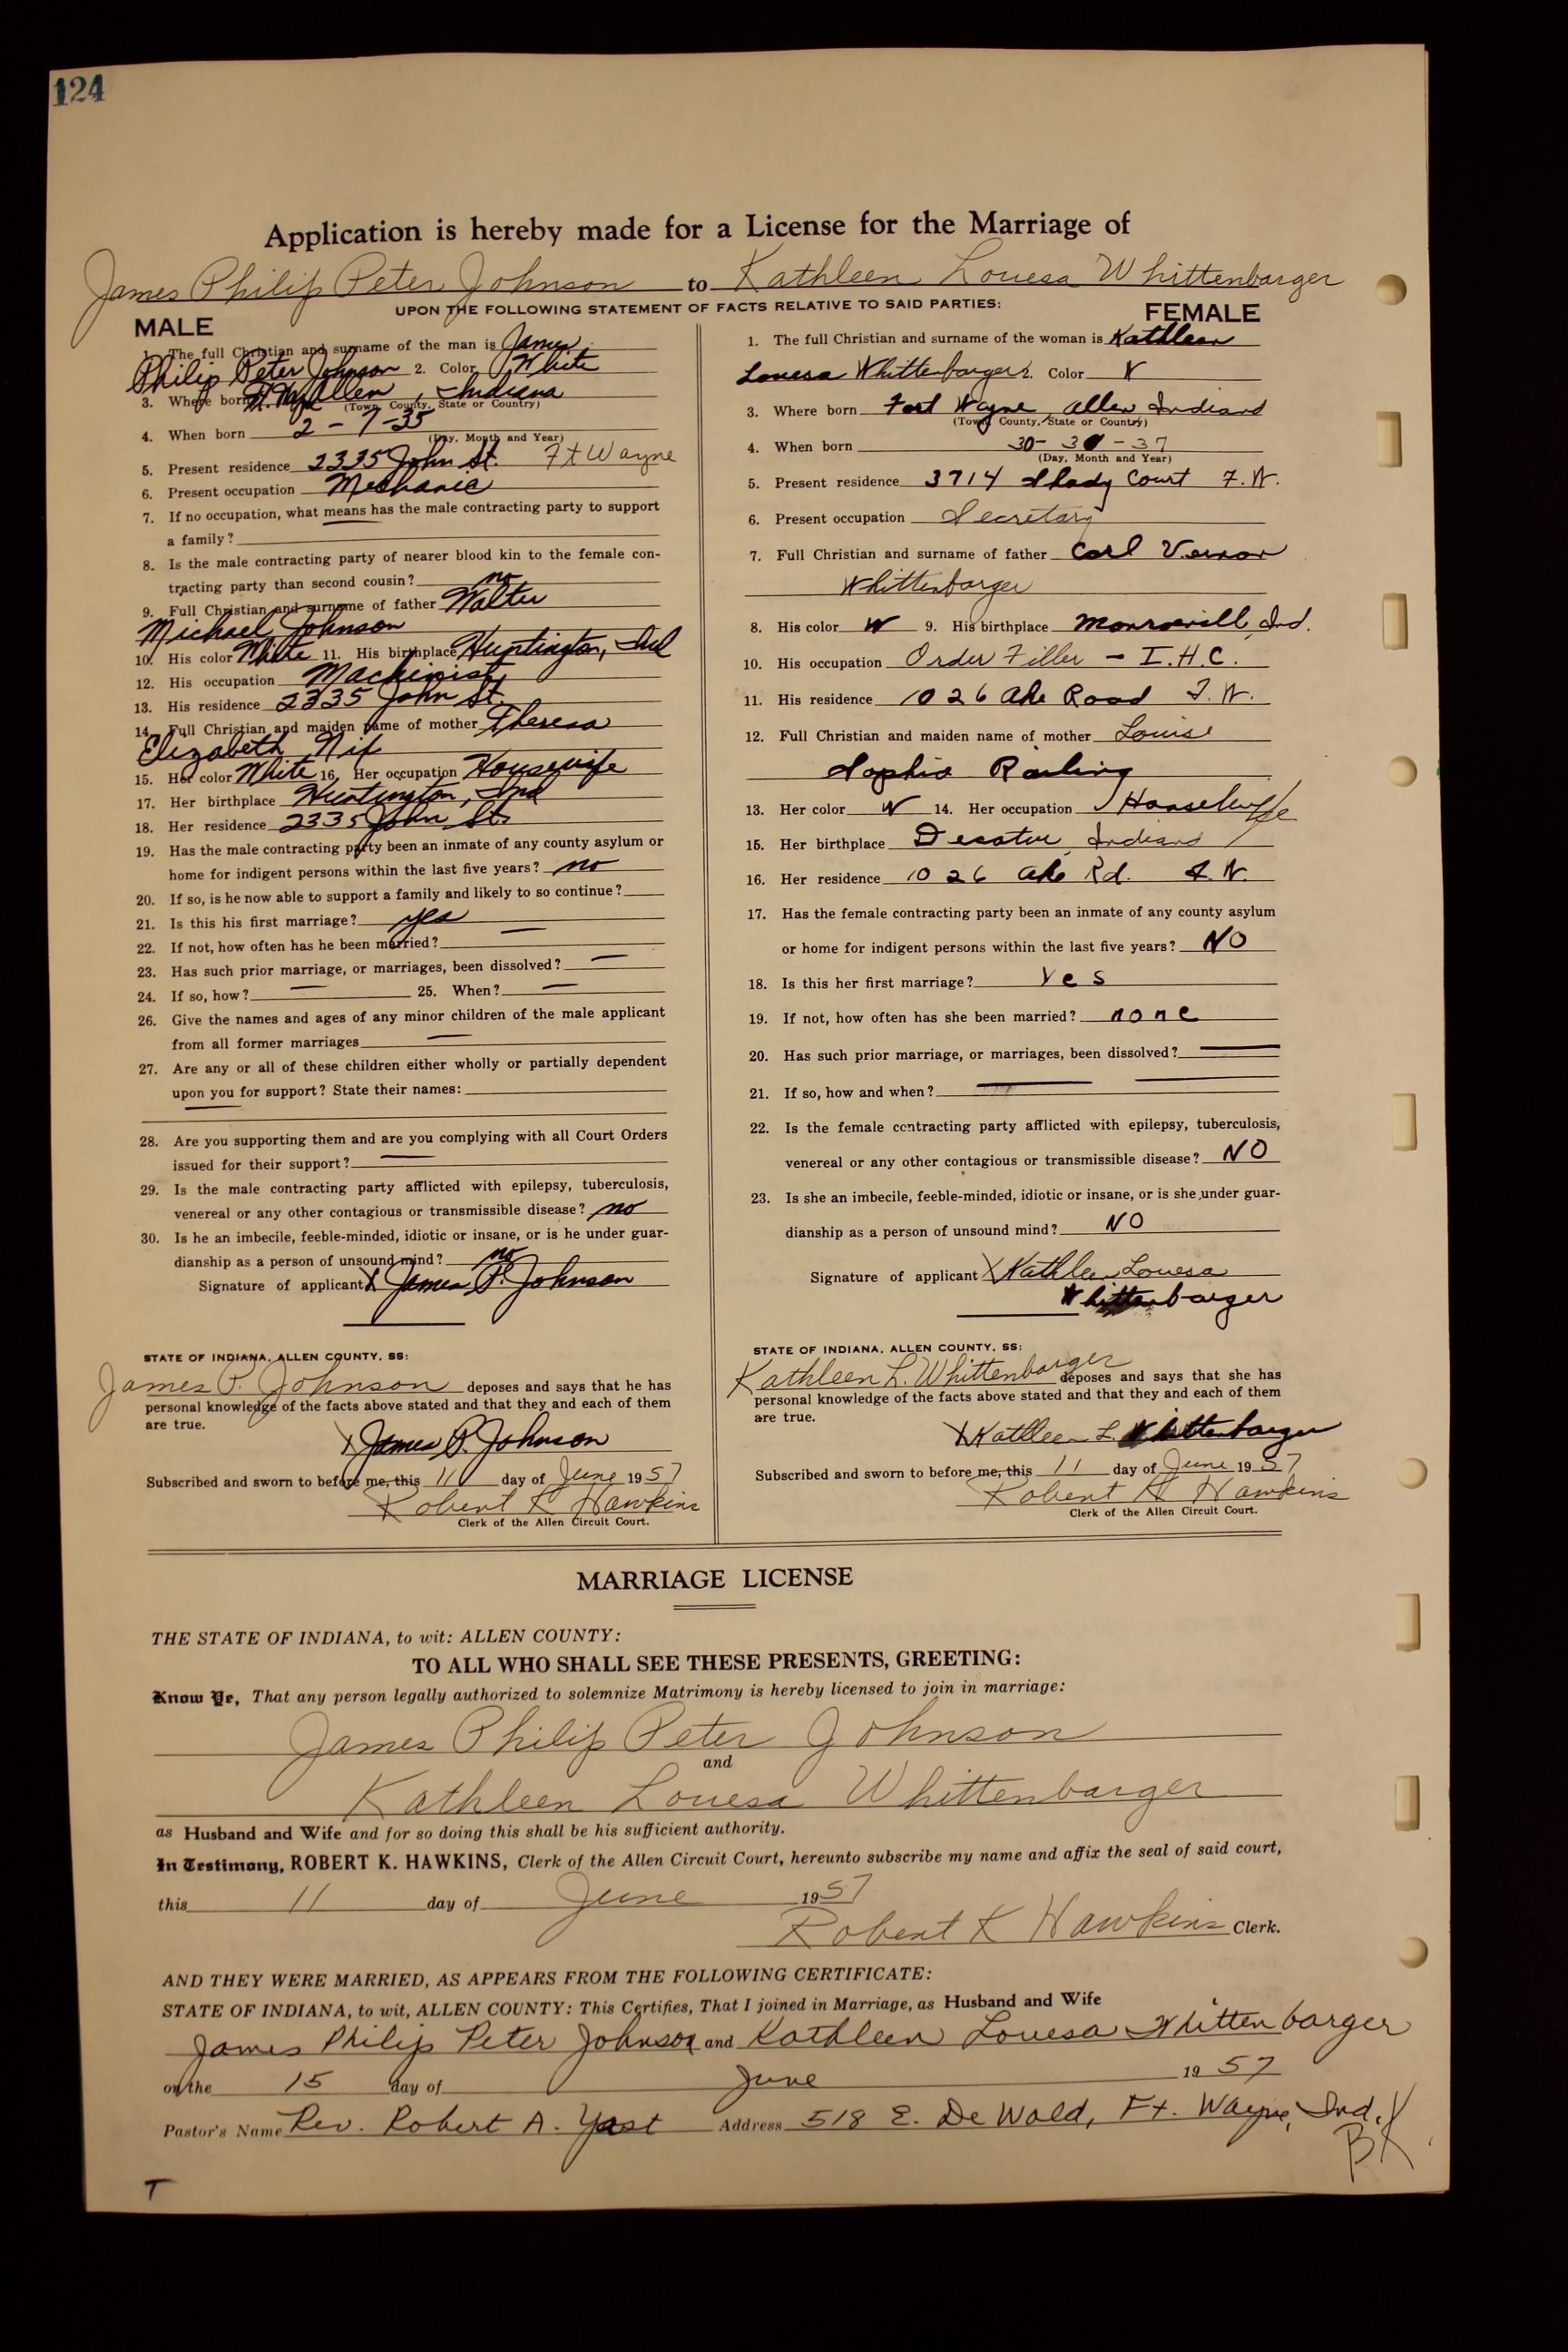 124
Application is hereby made for a License for the Marriage of
James Philip Peter Johnson to Kathleen Louesa Whittenbarger
UPON THE FOLLOWING STATEMENT OF FACTS RELATIVE TO SAID PARTIES:
MALE
1. The full Christian and surname of the man is James
Philip Peter Johnson 2. Color White
3. Where born Ft. Wayne Allen, Indiana
(Town, County, State or Country)
4. When born 2-7-35
(Day, Month and Year)
5. Present residence 2335 John St. Ft Wayne
6. Present occupation Mechanic
7. If no occupation, what means has the male contracting party to support
a family?
8. Is the male contracting party of nearer blood kin to the female con-
tracting party than second cousin? no
9. Full Christian and surname of father Walter
Michael Johnson
10. His color White 11. His birthplace Huntington, Ind
12. His occupation Machinist
13. His residence 2335 John St.
14. Full Christian and maiden name of mother Theresa
Elizabeth
15. Her color White 16. Her occupation Housewife
17. Her birthplace Huntington, Ind
18. Her residence 2335 John St.
19. Has the male contracting party been an inmate of any county asylum or
home for indigent persons within the last five years? no
20. If so, is he now able to support a family and likely to so continue?
21. Is this his first marriage? yes
22. If not, how often has he been married? —
23. Has such prior marriage, or marriages, been dissolved? —
24. If so, how? — 25. When? —
26. Give the names and ages of any minor children of the male applicant
from all former marriages —
27. Are any or all of these children either wholly or partially dependent
upon you for support? State their names:
28. Are you supporting them and are you complying with all Court Orders
issued for their support? —
29. Is the male contracting party afflicted with epilepsy, tuberculosis,
venereal or any other contagious or transmissible disease? no
30. Is he an imbecile, feeble-minded, idiotic or insane, or is he under guar-
dianship as a person of unsound mind? no
Signature of applicant X James P. Johnson
STATE OF INDIANA, ALLEN COUNTY, SS:
James P. Johnson deposes and says that he has
personal knowledge of the facts above stated and that they and each of them
are true.
X James P. Johnson
Subscribed and sworn to before me, this 11 day of June 1957
Robert K Hawkins
Clerk of the Allen Circuit Court.
FEMALE
1. The full Christian and surname of the woman is Kathleen
Louesa Whittenbarger 2. Color W
3. Where born Fort Wayne, Allen Indiana
(Town, County, State or Country)
4. When born 30- 3 -37
(Day, Month and Year)
5. Present residence 3714 Shady Court F.W.
6. Present occupation Secretary
7. Full Christian and surname of father Carl Vernon
Whittenbarger
8. His color W 9. His birthplace Monroevill Ind.
10. His occupation Order Filler - I.H.C.
11. His residence 1026 Ahe Road F.W.
12. Full Christian and maiden name of mother Louise
Sophia
13. Her color W 14. Her occupation Housewife
15. Her birthplace Decatur, Indiana
16. Her residence 1026 Ahe Rd. F.W.
17. Has the female contracting party been an inmate of any county asylum
or home for indigent persons within the last five years? NO
18. Is this her first marriage? Yes
19. If not, how often has she been married? none
20. Has such prior marriage, or marriages, been dissolved? —
21. If so, how and when? — —
22. Is the female contracting party afflicted with epilepsy, tuberculosis,
venereal or any other contagious or transmissible disease? NO
23. Is she an imbecile, feeble-minded, idiotic or insane, or is she under guar-
dianship as a person of unsound mind? NO
Signature of applicant X Kathleen Louesa
Whittenbarger
STATE OF INDIANA, ALLEN COUNTY, SS:
Kathleen L. Whittenbarger deposes and says that she has
personal knowledge of the facts above stated and that they and each of them
are true.
X Kathleen L. Whittenbarger
Subscribed and sworn to before me, this 11 day of June 1957
Robert K Hawkins
Clerk of the Allen Circuit Court.
MARRIAGE LICENSE
THE STATE OF INDIANA, to wit: ALLEN COUNTY:
TO ALL WHO SHALL SEE THESE PRESENTS, GREETING:
Know Ye, That any person legally authorized to solemnize Matrimony is hereby licensed to join in marriage:
James Philip Peter Johnson
and
Kathleen Louesa Whittenbarger
as Husband and Wife and for so doing this shall be his sufficient authority.
In Testimony, ROBERT K. HAWKINS, Clerk of the Allen Circuit Court, hereunto subscribe my name and affix the seal of said court,
this 11 day of June 1957
Robert K Hawkins Clerk.
AND THEY WERE MARRIED, AS APPEARS FROM THE FOLLOWING CERTIFICATE:
STATE OF INDIANA, to wit, ALLEN COUNTY: This Certifies, That I joined in Marriage, as Husband and Wife
James Philip Peter Johnson and Kathleen Louesa Whittenbarger
on the 15 day of June 1957
Pastor's Name Rev. Robert A. Yast Address 518 E. DeWald, Ft. Wayne, Ind.
BK
T